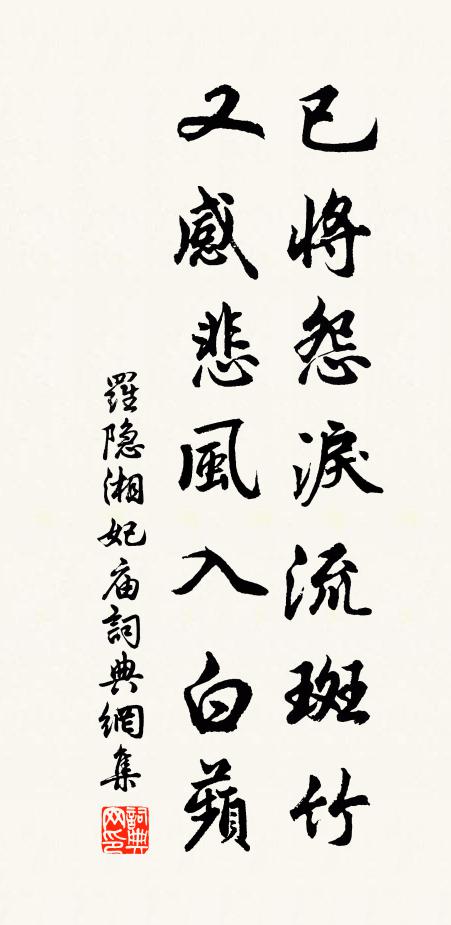 已將怨淚流斑竹
又感悲風入白蘋
羅隐湘妃庙詞典網集
詞典
网印